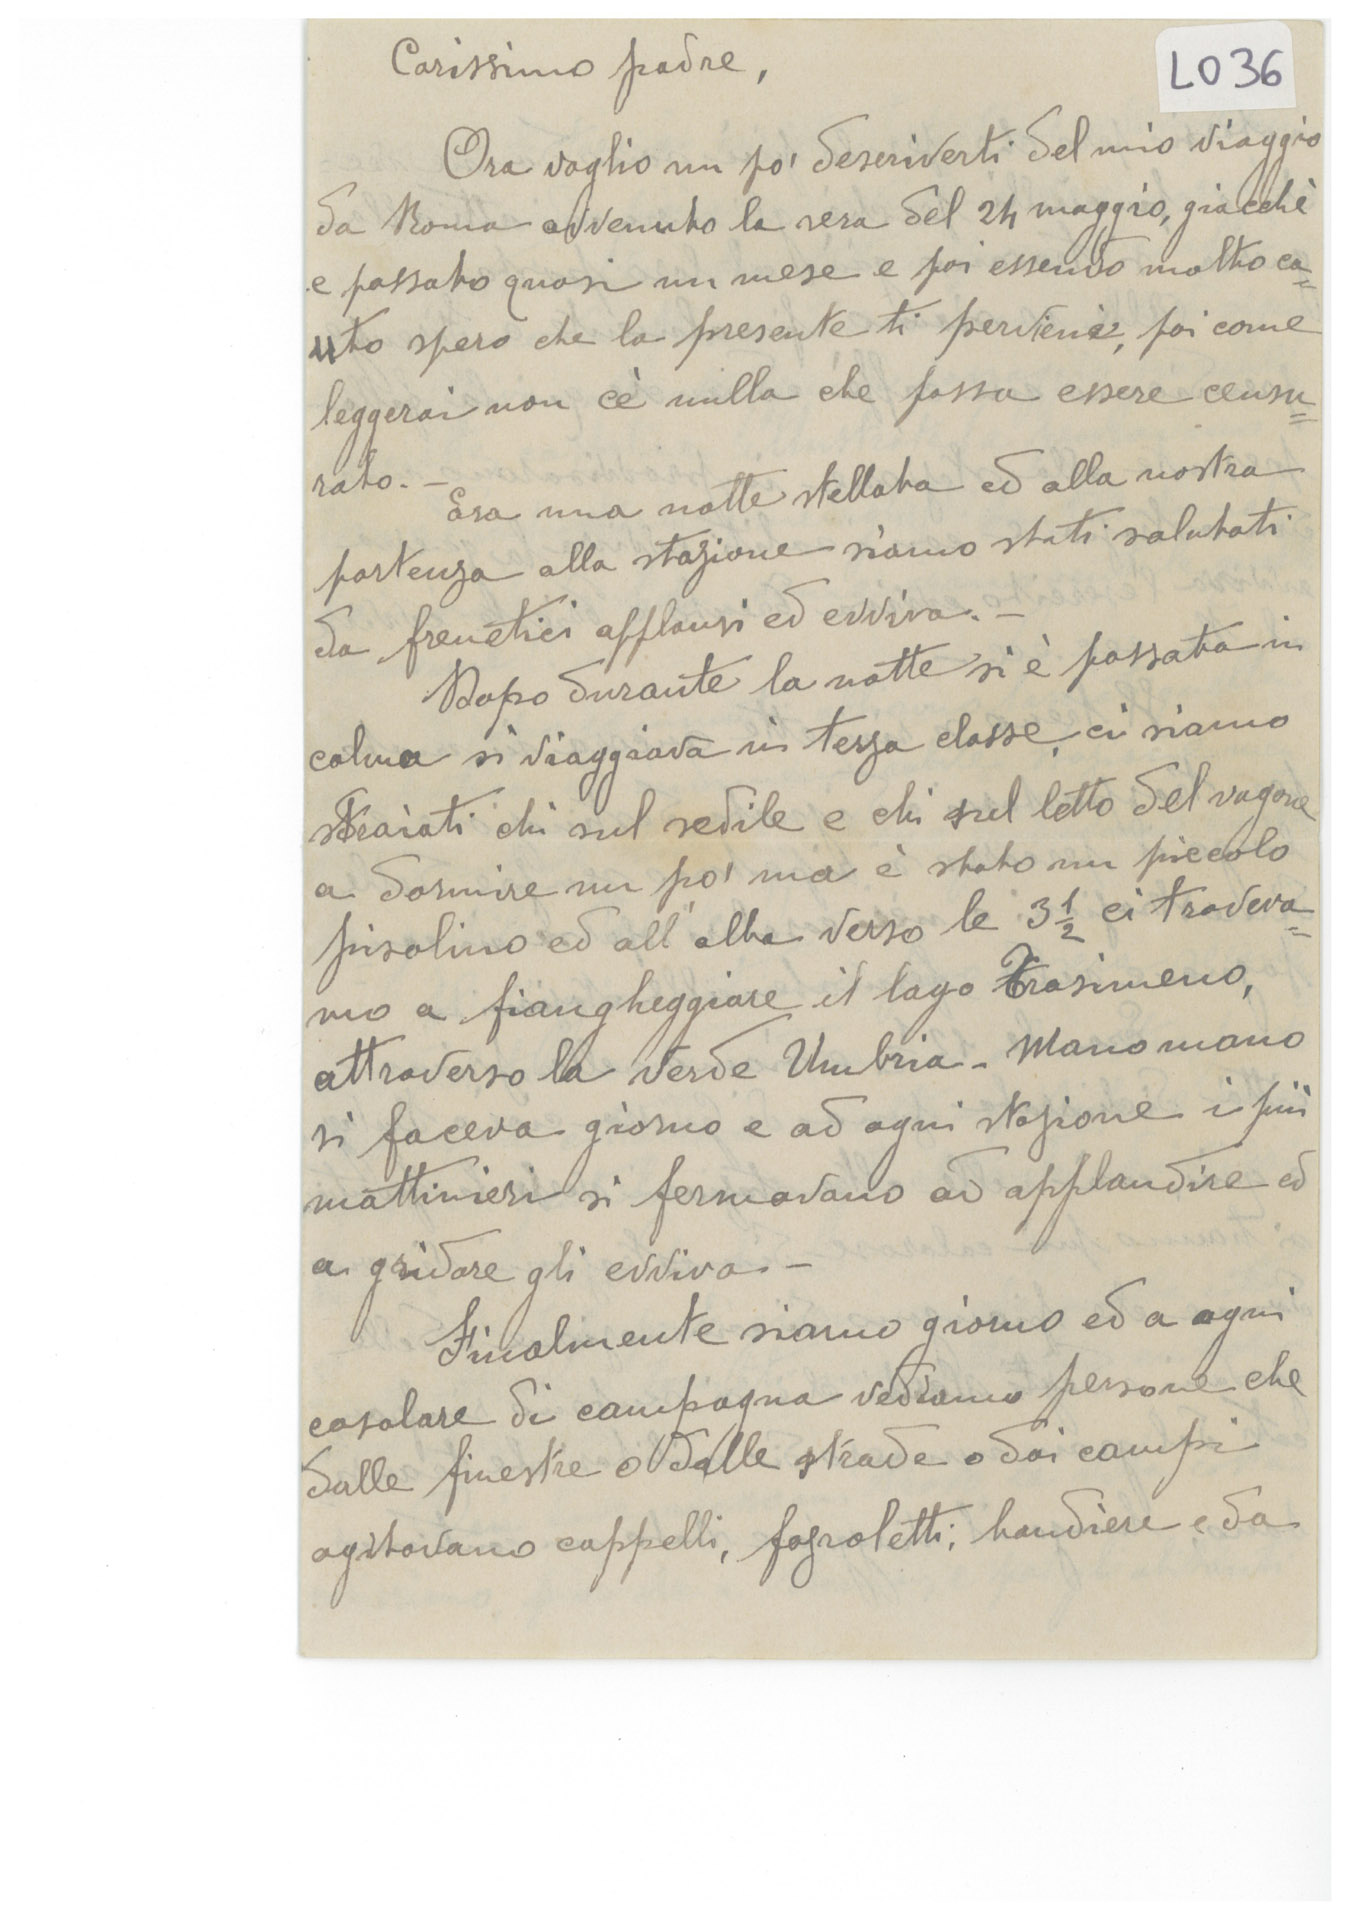 L036
Carissimo padre,
Ora voglio un po' descriverti del mio viaggio
da Roma avvenuto la sera del 24 maggio, giacchè
e passato quasi un mese e poi essendo molto ca=
uto spero che la presente ti perviene, poi come
leggerai non c'è nulla che possa essere censu=
rato. –
Era una notte stellata ed alla nostra
partenza alla stazione siamo stati salutati
da frenetici applausi ed evviva. –
Dopo durante la notte si è passata in
calma si viaggiava in terza classe, ci siamo
straiati chi sul sedile e chi sul letto del vagone
a dormire un po' ma è stato un piccolo
pisolino ed all'alba verso le 3 1/2 ci trovava=
mo a fiangheggiare il lago Trasimeno,
attraverso la verde Umbria. Mano mano
si faceva giorno e ad ogni stazione i più
mattinieri si fermavano ad applaudire ed
a gridare gli evviva. –
Finalmente siamo giorno ed a ogni
casolare di campagna vediamo persone che
dalle finestre o dalle strade o dai campi
agitavano cappelli, fazzoletti, bandiere e da